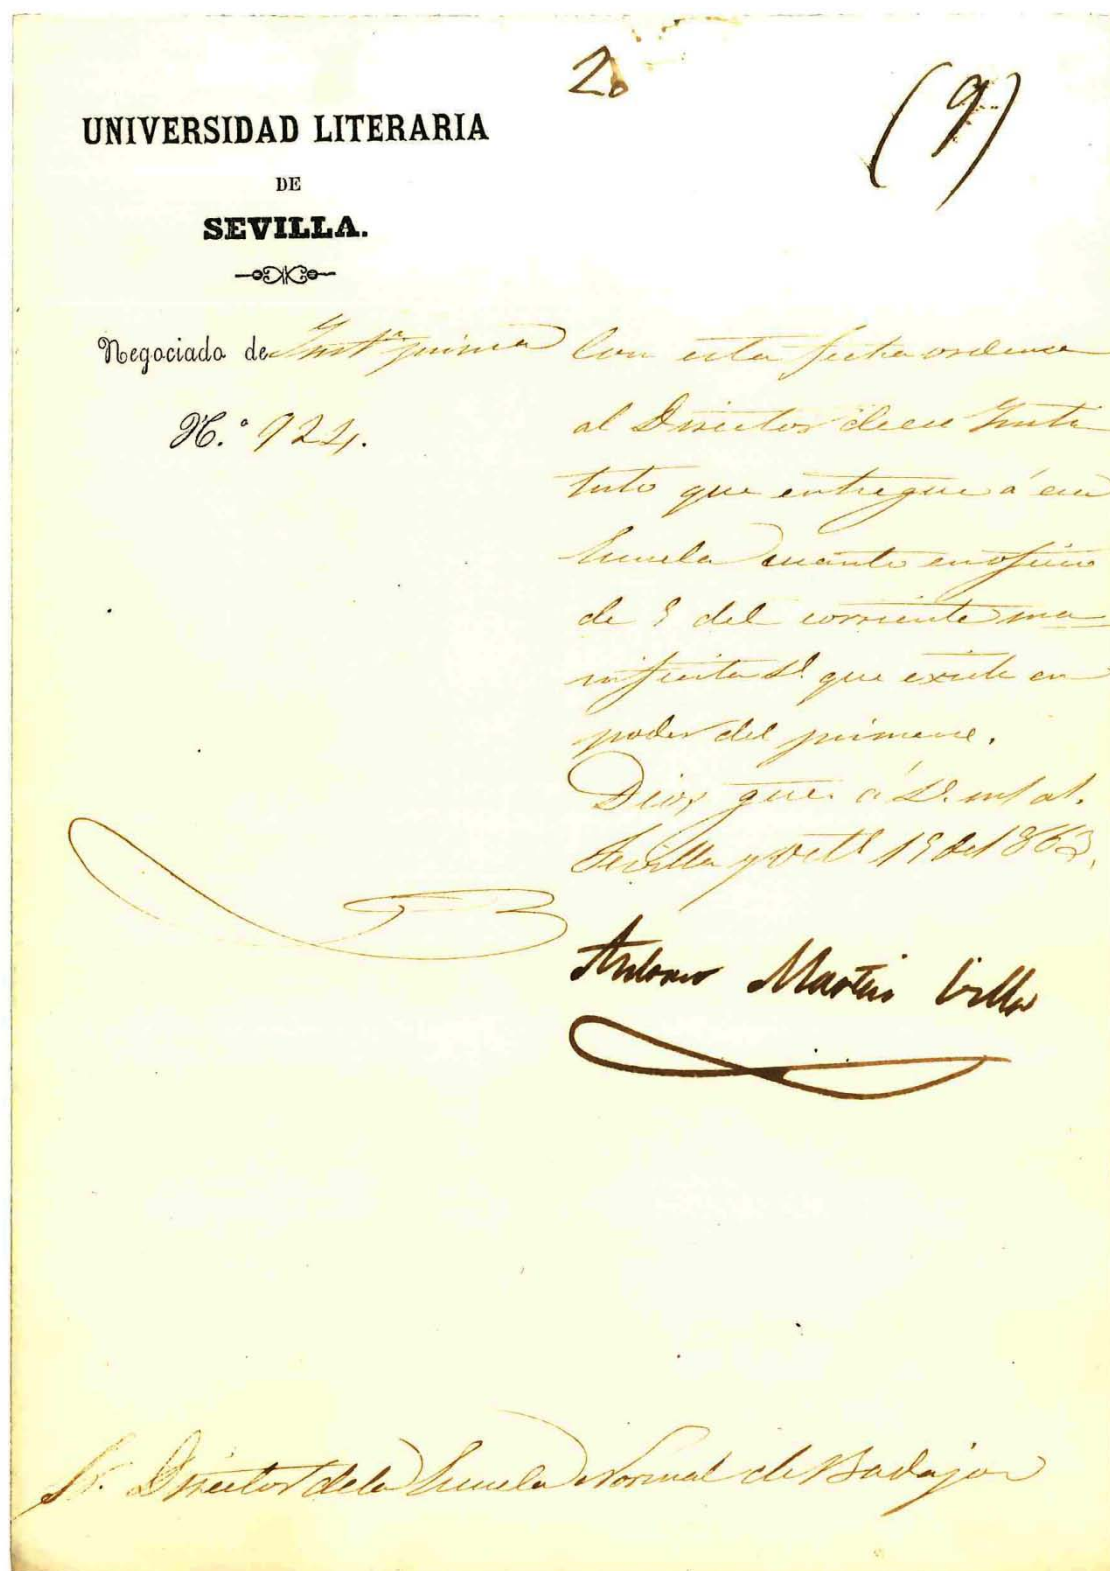 20
(9)
UNIVERSIDAD LITERARIA
DE
SEVILLA.
Negociado de Inst.ª prima
N.º 924.
Con esta fecha ordeno
al Director de ese Insti
tuto que entregue á esa
Escuela cuanto en oficio
de 9 del corriente ma
nifiesta V. que existe en
poder del primero.
Dios gue. á V. ms as.
Sevilla y Oct.e 19 de 1863.
Antonio Martin Villa
Sr. Director de la Escuela Normal de Badajoz